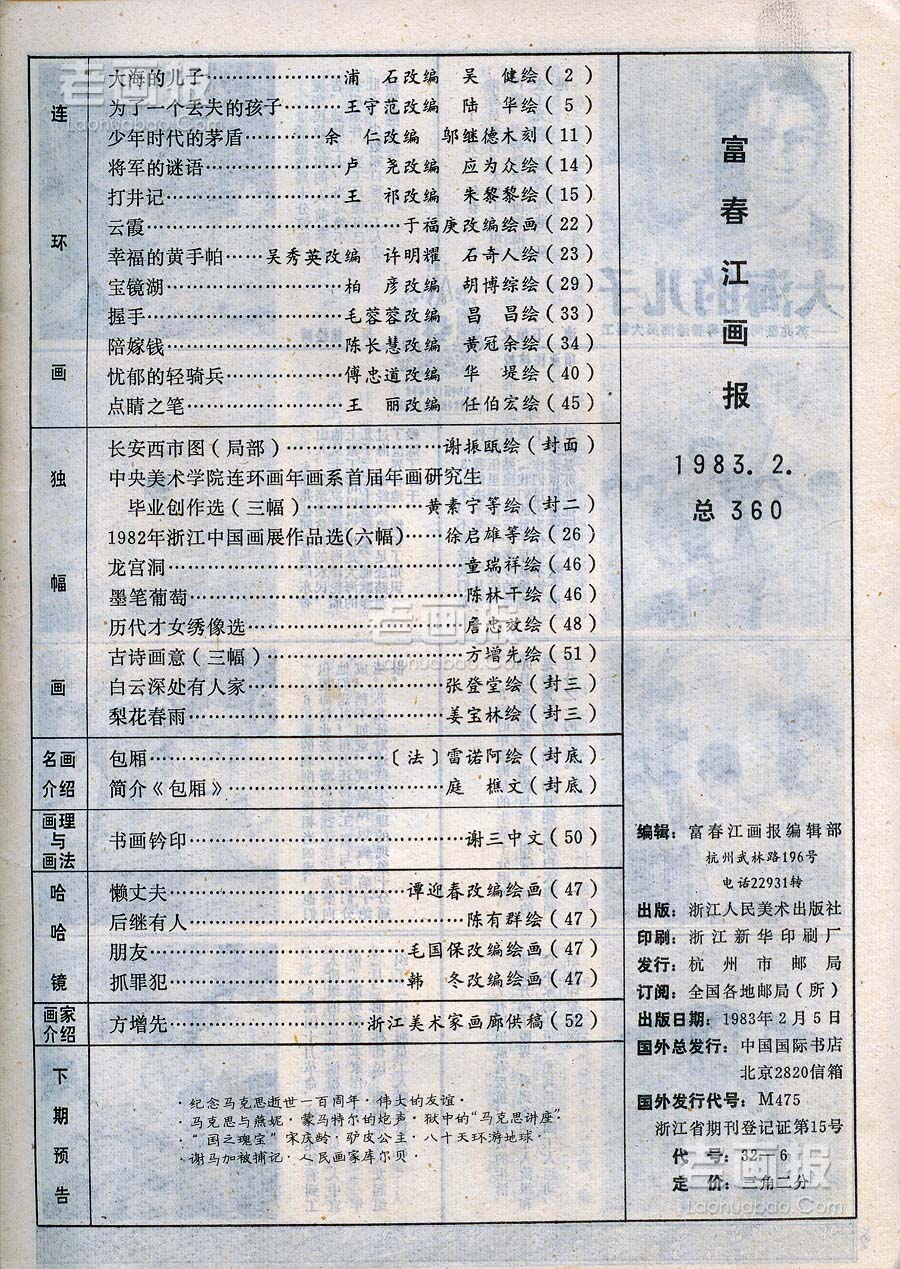 连环画
大海的儿子…………………浦　石改编　吴　健绘(2)
为了一个丢失的孩子………王守范改编　陆　华绘(5)
少年时代的茅盾…………余　仁改编　邬继德木刻(11)
将军的谜语…………………卢　尧改编　应为众绘(14)
打井记………………………王　祁改编　朱黎黎绘(15)
云霞…………………………………于福庚改编绘画(22)
幸福的黄手帕……吴秀英改编　许明耀　石奇人绘(23)
宝镜湖………………………柏　彦改编　胡博综绘(29)
握手…………………………毛蓉蓉改编　昌　昌绘(33)
陪嫁钱………………………陈长慧改编　黄冠余绘(34)
忧郁的轻骑兵………………傅忠道改编　华　堤绘(40)
点睛之笔……………………王　丽改编　任伯宏绘(45)
独幅画
长安西市图(局部)……………………谢振瓯绘(封面)
中央美术学院连环画年画系首届年画研究生
毕业创作选(三幅)………………黄素宁等绘(封二)
1982年浙江中国画展作品选(六幅)……徐启雄等绘(26)
龙宫洞………………………………………童瑞祥绘(46)
墨笔葡萄……………………………………陈林干绘(46)
历代才女绣像选……………………………詹忠效绘(48)
古诗画意(三幅)…………………………方增先绘(51)
白云深处有人家…………………………张登堂绘(封三)
梨花春雨…………………………………姜宝林绘(封三)
名画介绍
包厢………………………………〔法〕雷诺阿绘(封底)
简介《包厢》……………………………庭　樵文(封底)
画理与画法
书画钤印……………………………………谢三中文(50)
哈哈镜
懒丈夫………………………………谭迎春改编绘画(47)
后继有人……………………………………陈有群绘(47)
朋友…………………………………毛国保改编绘画(47)
抓罪犯………………………………韩　冬改编绘画(47)
画家介绍
方增先…………………………浙江美术家画廊供稿(52)
下期预告
·纪念马克思逝世一百周年·伟大的友谊·
·马克思与燕妮·蒙马特尔的炮声·狱中的“马克思讲座”
·“国之瑰宝”宋庆龄·驴皮公主·八十天环游地球·
·谢马加被捕记·人民画家库尔贝·
富春江画报
1983.2.
总360
编辑：富春江画报编辑部
杭州武林路196号
电话22931转
出版：浙江人民美术出版社
印刷：浙江新华印刷厂
发行：杭州市邮局
订阅：全国各地邮局(所)
出版日期：1983年2月5日
国外总发行：中国国际书店
北京2820信箱
国外发行代号：M475
浙江省期刊登记证第15号
代号：32—6
定价：三角二分
老画报
Laohuabao.Com
老画报
Laohuabao.Com
老画报
Laohuabao.Com